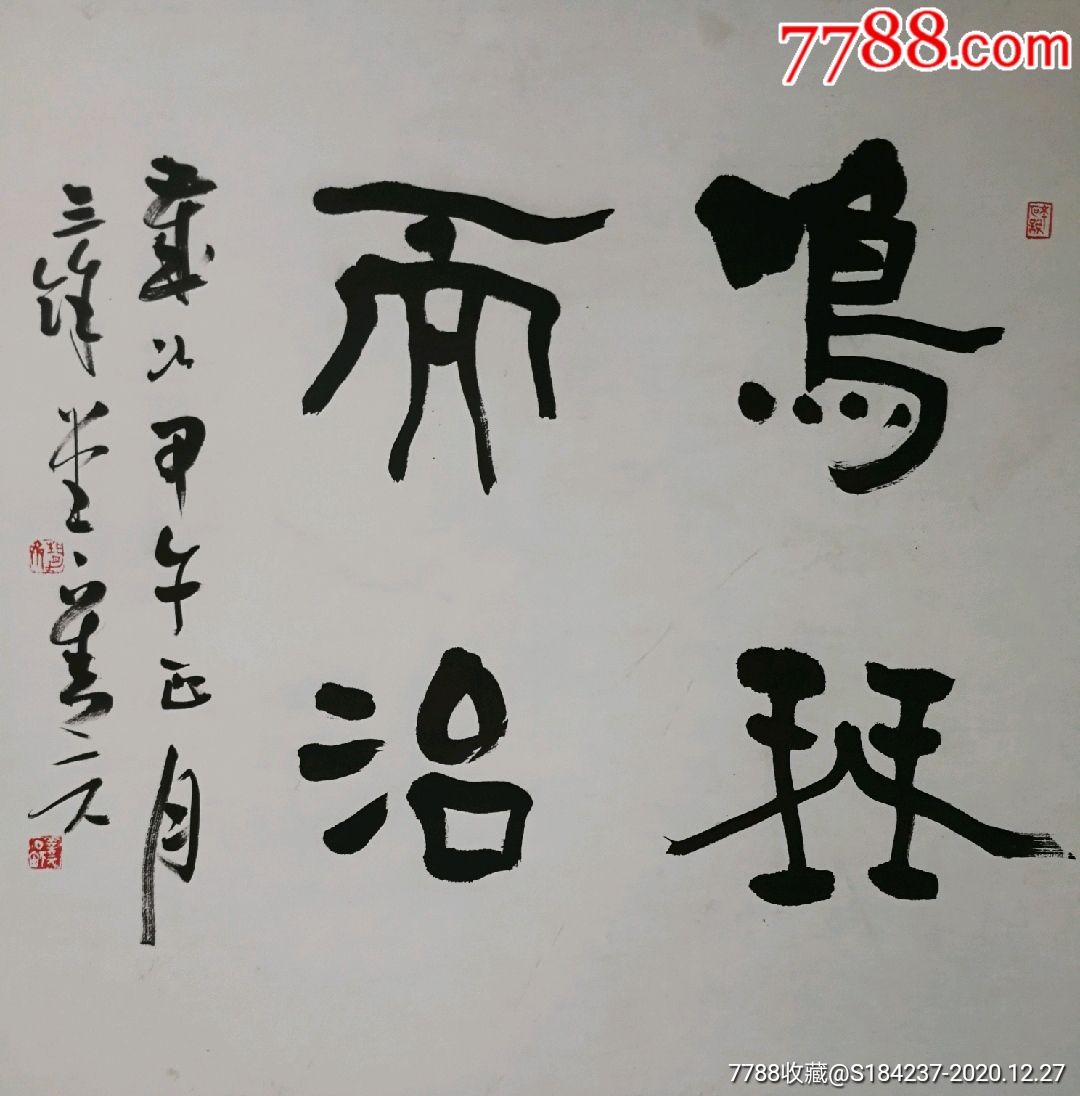 7788.com
鳴琴
而治
歲次甲午正月
三鋒堂
7788收藏@S184237-2020.12.27